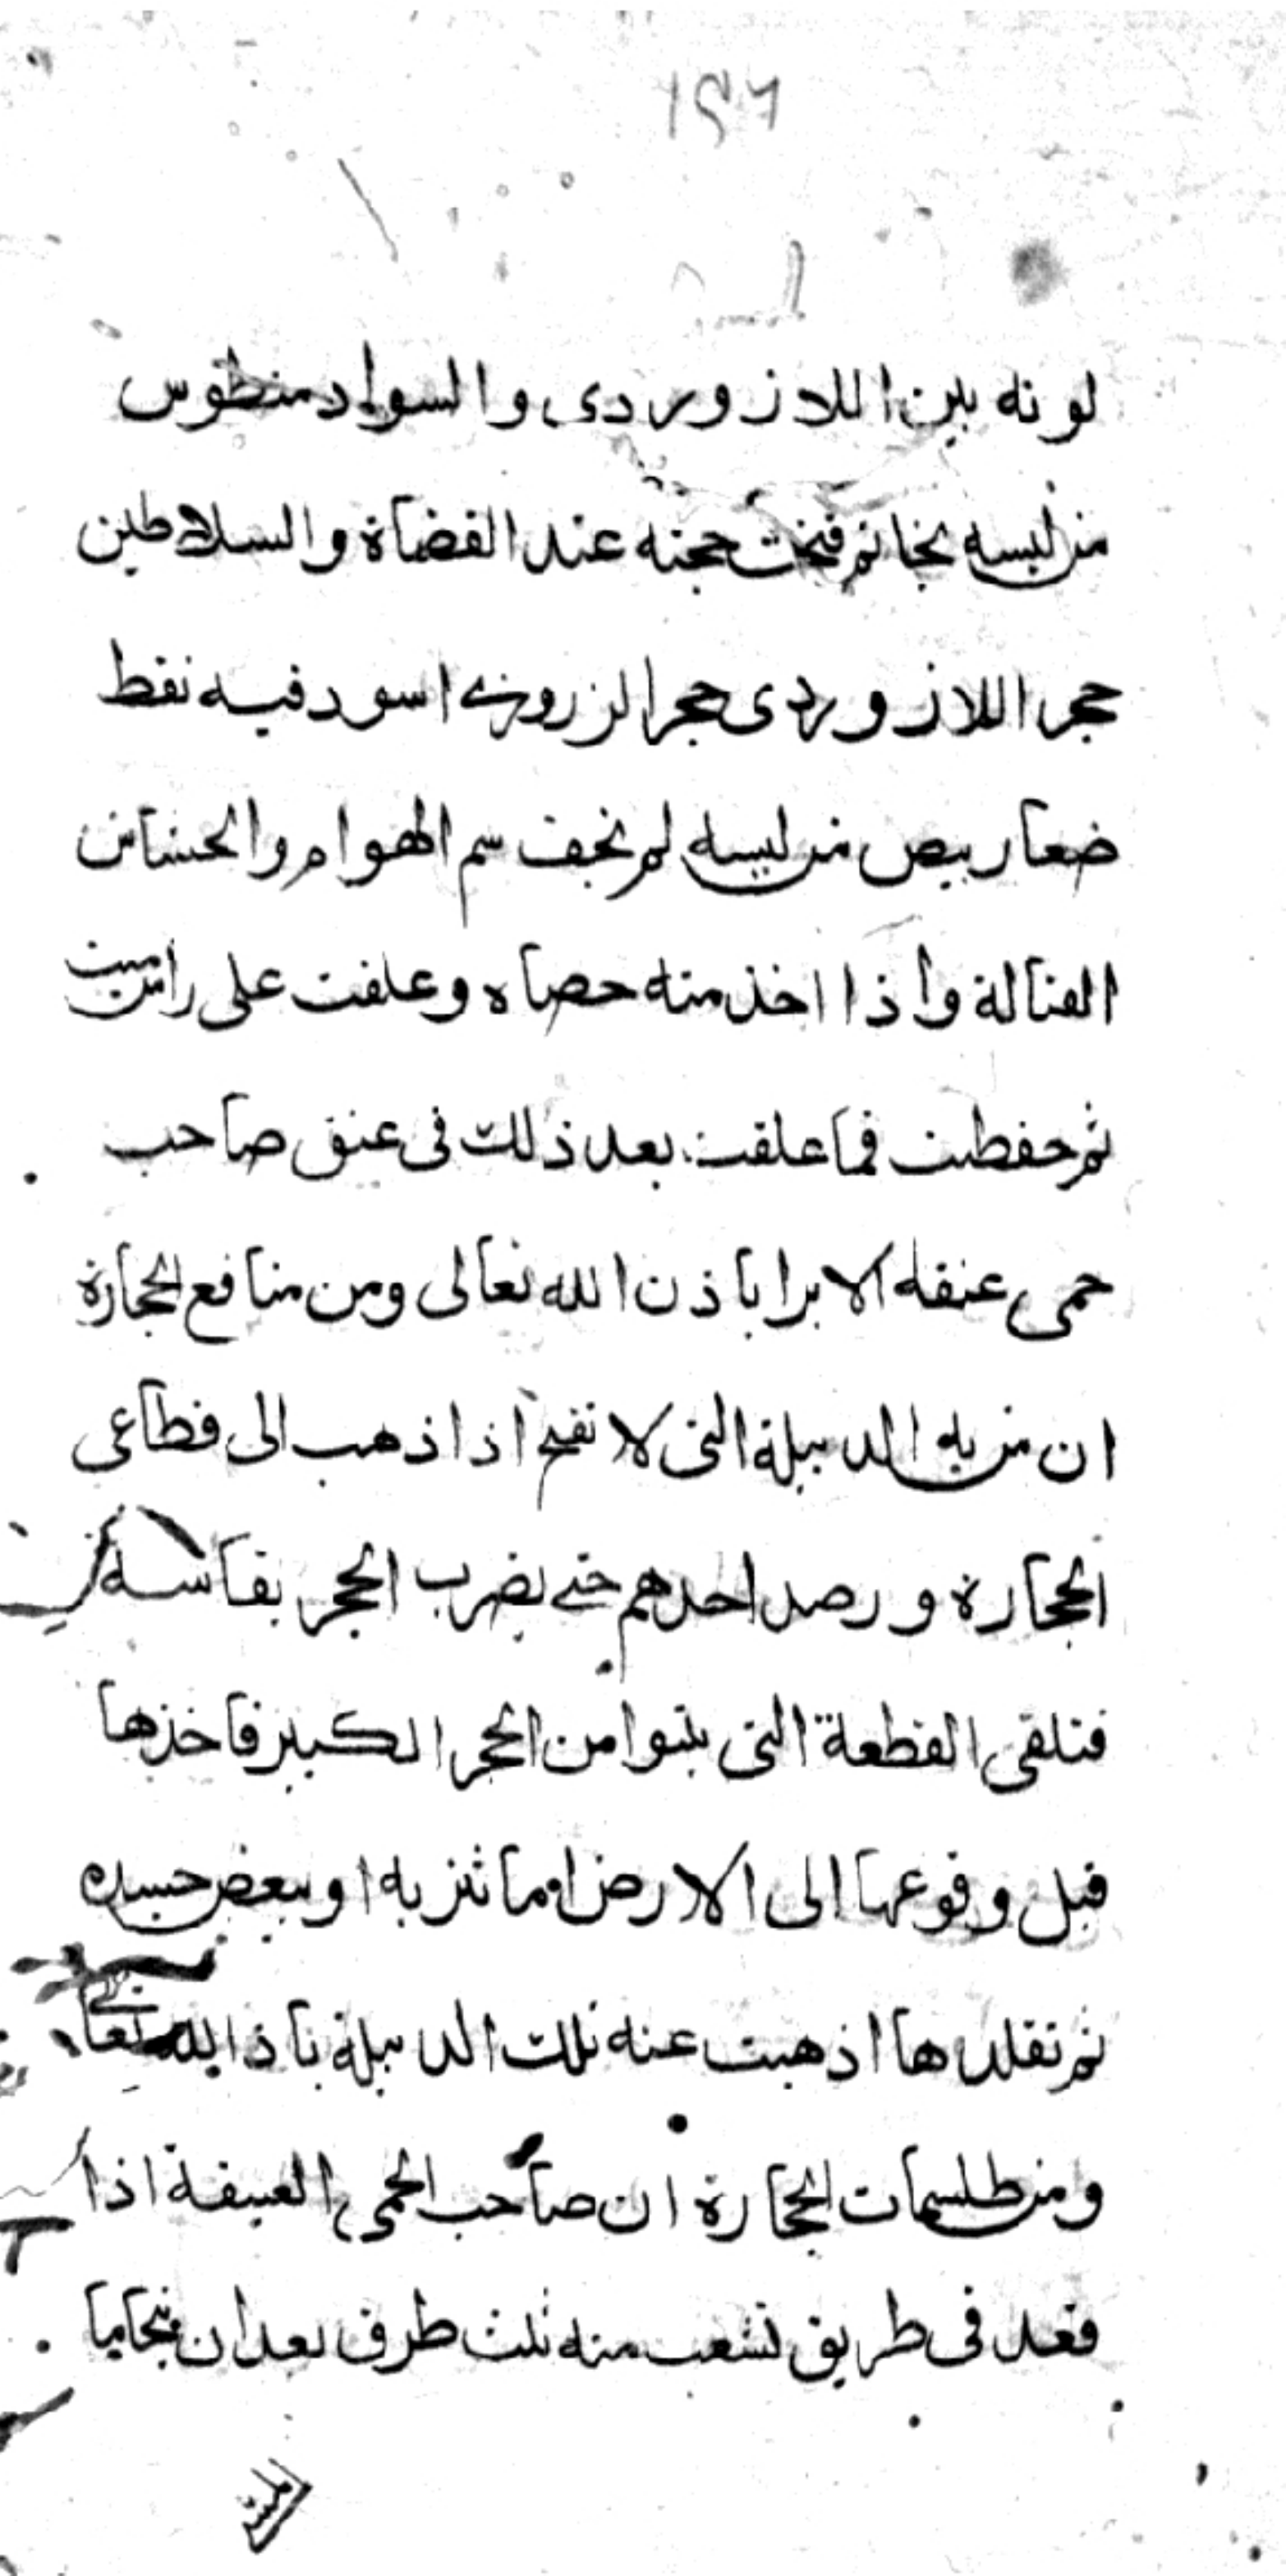 ١٤٦
لونه بين اللازوردى والسواد منطوس
من لبسه بخاتم فتحت حجته عند القضاة والسلاطين
حجر اللازوردى حجر الزروزى اسود فيه نقط
ضعار بيض من لبسه لم يخف سم الهوام والحشائش
القتالة واذا اخذ منه حصاه وعلقت على راس ميت
ثم حفظت فما علقت بعد ذلك فى عنق صاحب
حمى عنقه الا برا باذن الله تعالى ومن منافع الحجارة
ان من به الدبيلة التى لا تفتح اذا ذهب الى قطاعى
الحجارة ورصد احدهم حتى يضرب الحجر بفاسه
فتلقى القطعة التى ينبوا من الحجر الكبير فاخذها
قبل وقوعها الى الارض اما بثربه او ببعض جسده
ثم تقلدها اذهبت عنه تلك الدبيلة باذ الله تعا
ومن طلسمات الحجارة ان صاحب الحمى العتيقة اذا
قعد فى طريق تشعب منه ثلث طرق بعد ان